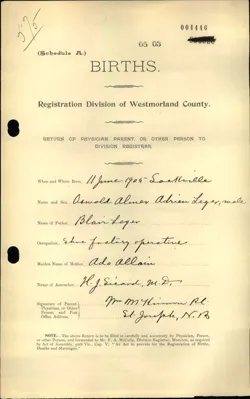 05 03
004446
(Schedule A.)
BIRTHS.
Registration Division of Westmorland County.
RETURN OF PHYSICIAN PARENT, OR OTHER PERSON TO
DIVISION REGISTRAR.
When and Where Born, 11 June 1905 Sackville
Name and Sex, Osmold Almer Adrien Leger, male
Name of Father, Blair Leger
Occupation, Shoe factory operative
Maiden Name of Mother, Ada Allain
Name of Accoucheur, H. J. Girard, M.D.
Signature of Parent,
Physician, or Other
Person; and Post
Office Address.
Wm McKinnon
St. Joseph, N.B
NOTE.—The above Return is to be filled in carefully and accurately by Physician, Parent,
or other Person, and forwarded to Division Registrar, Moncton, as required
by Act of Assembly, Cap. V. "An Act to provide for the Registration of Births,
Deaths and Marriages."